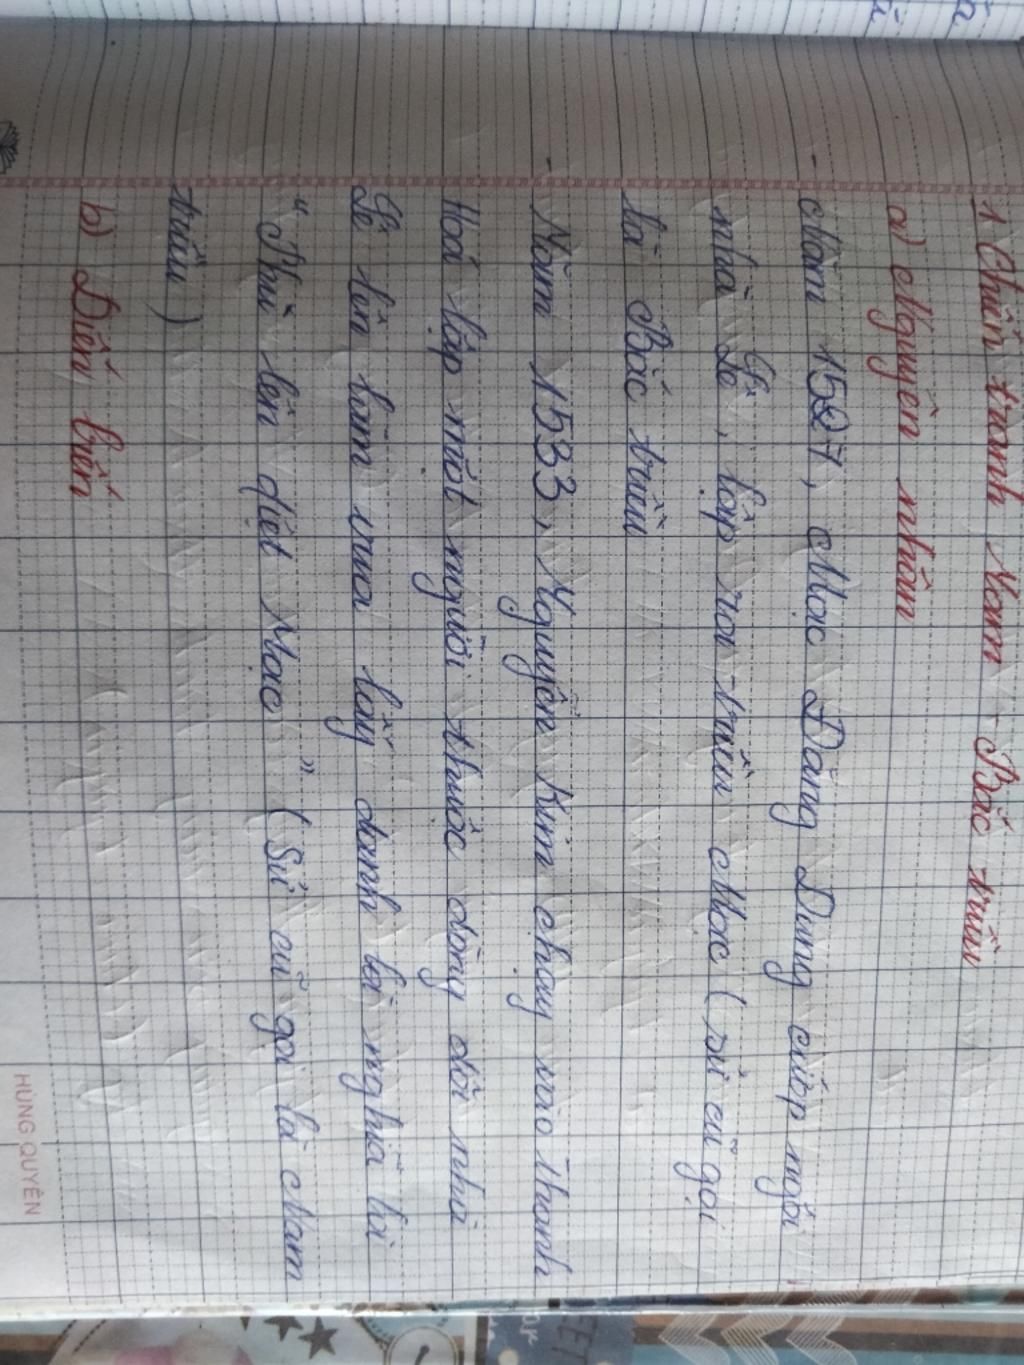 1 Chiến tranh Nam - Bắc triều
a) Nguyên nhân
- Năm 1527, Mạc Đăng Dung cướp ngôi
nhà Lê, lập ra triều Mạc ( sử cũ gọi
là Bắc triều
- Năm 1533, Nguyễn Kim chạy vào Thanh
Hoá lập một người thuộc dòng dõi nhà
Lê lên làm vua lấy danh là nghĩa là
" Phù Lên diệt Mạc " ( Sử cũ gọi là Nam
triều )
b) Diễn biến
HÙNG QUYÊN